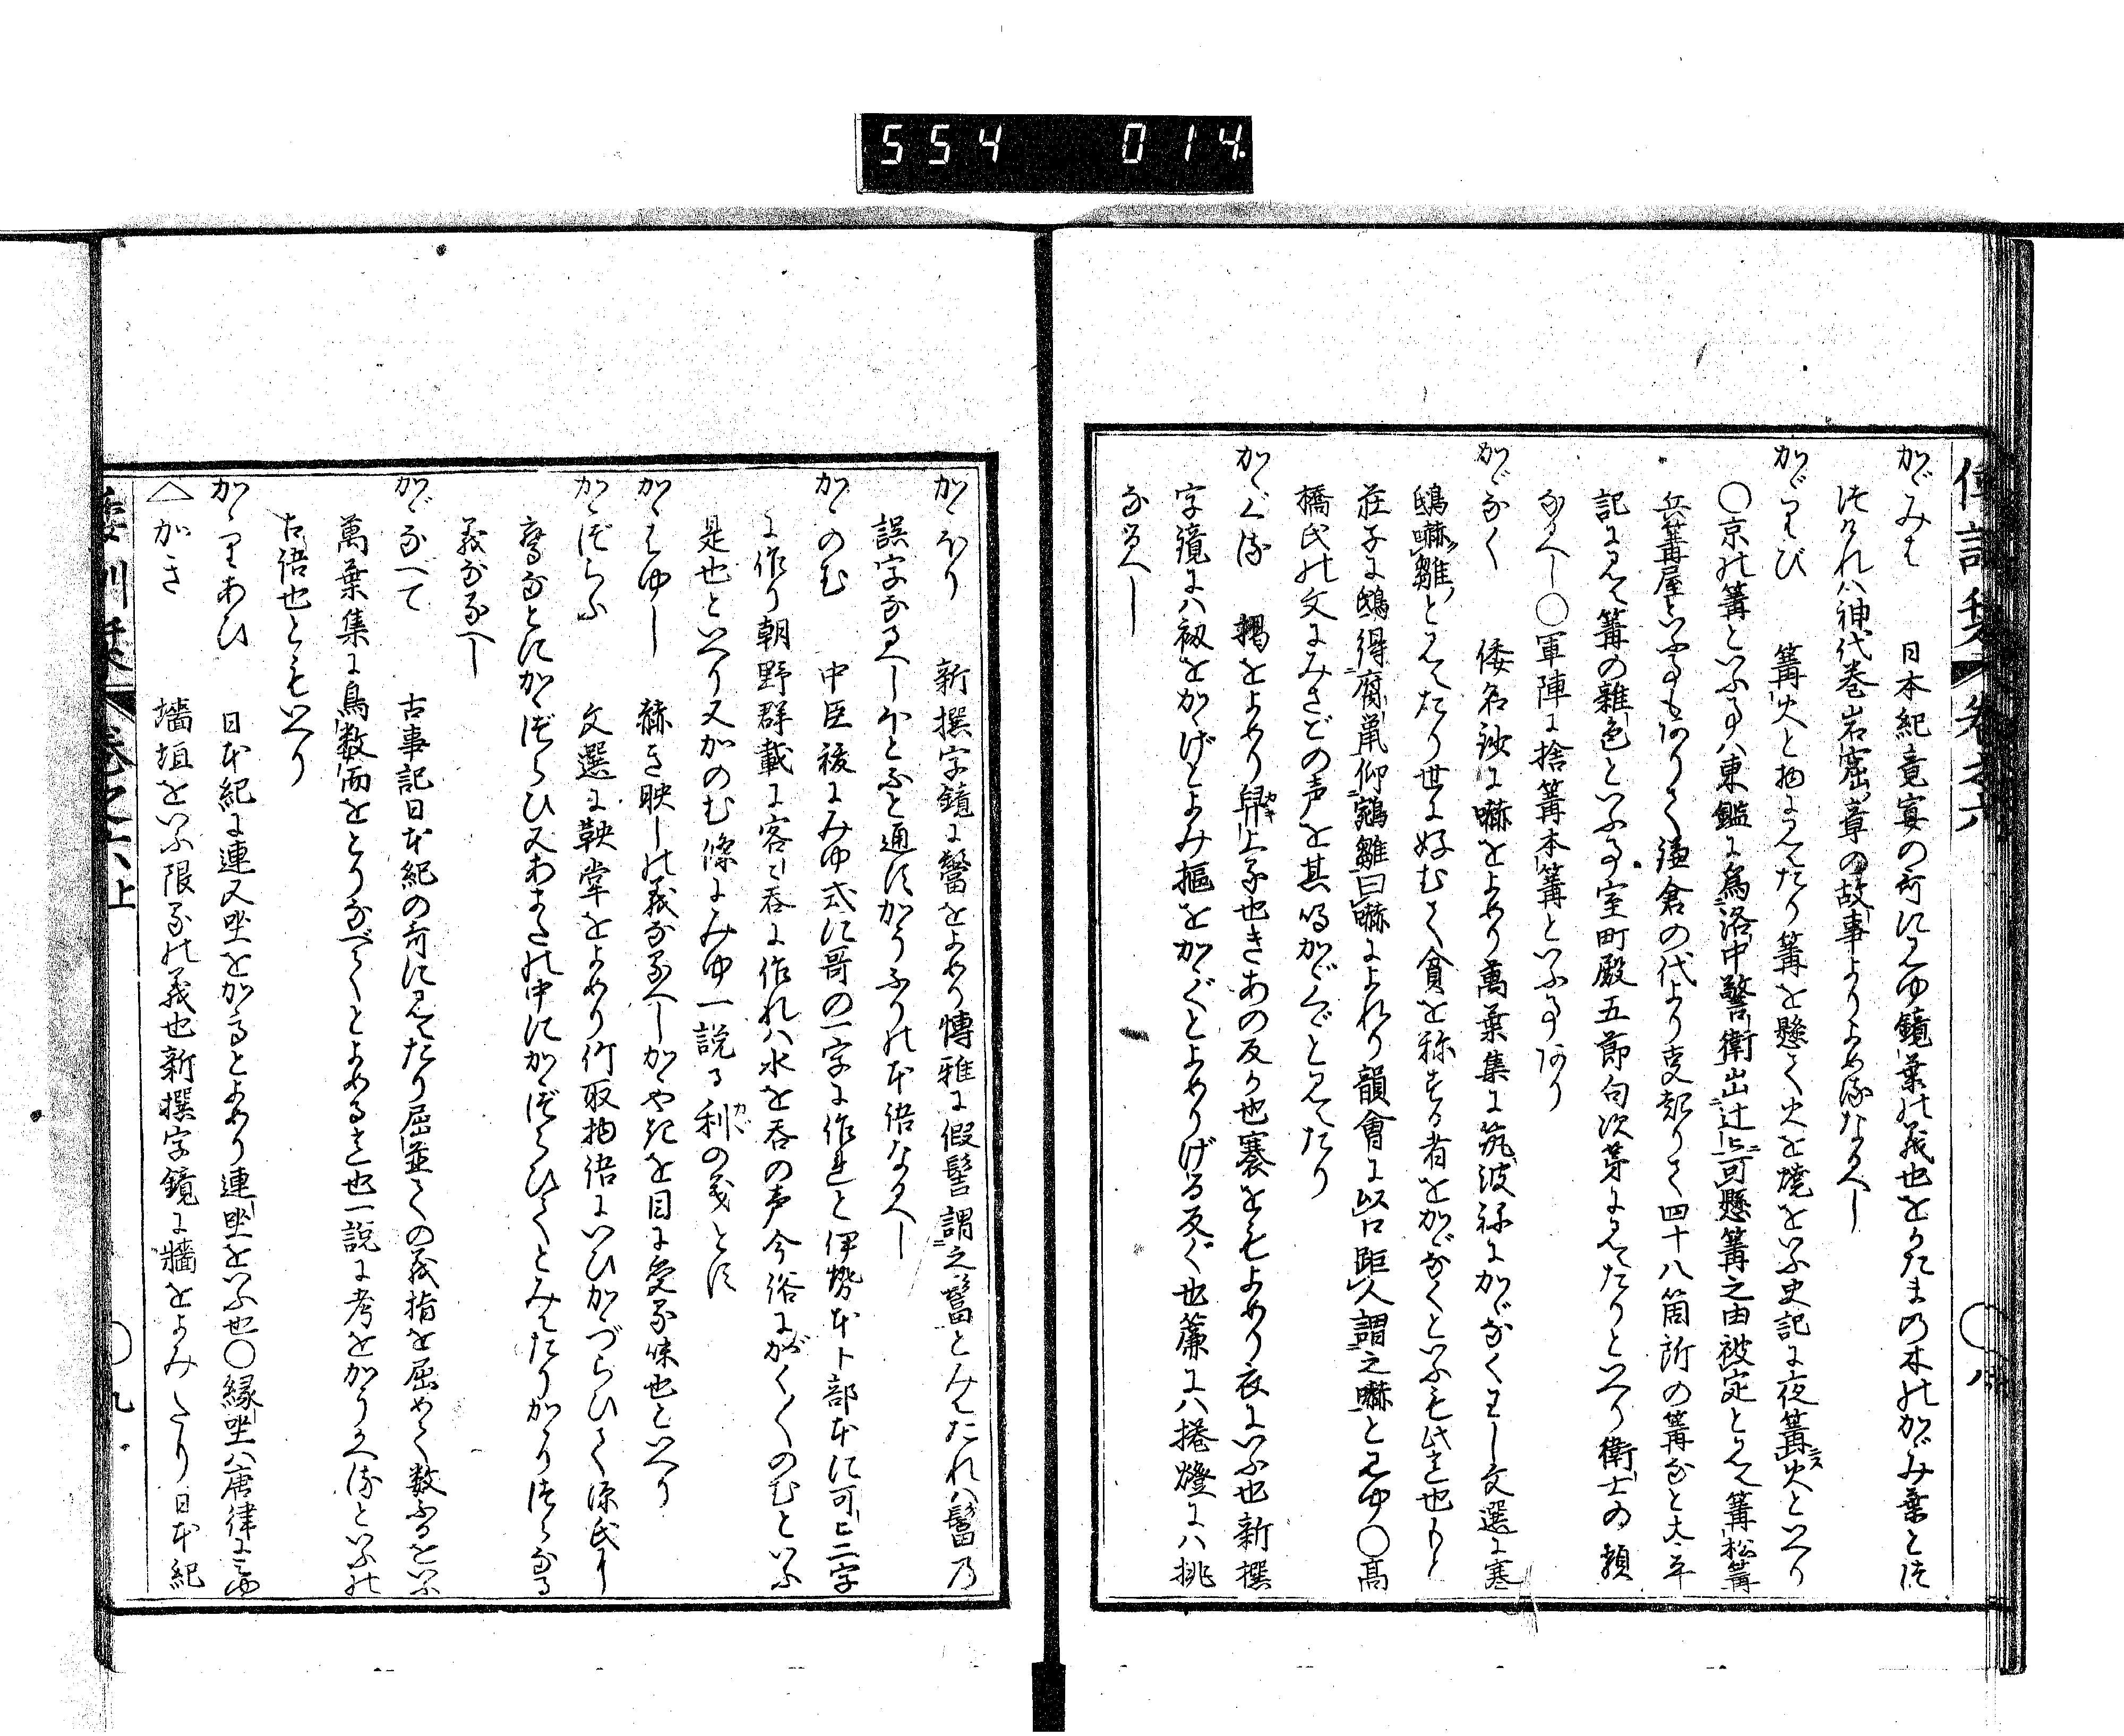 554 014
かゞみは 日本紀竟宴の哥に見ゆ鏡葉の義也をかたまの木のかゞみ葉とつ
つけれは神代巻岩窟章の故事よりよめるなるへし
かゞりび 篝火と抽に見えたり篝を懸て火を焼をいふ史記に夜篝火といへり
○京の篝といふ事ハ東鑑に為洛中警衛出辻々可懸篝之由被定と見え篝松篝
兵篝屋といふ事もありて鎌倉の代より支起りて四十八箇所の篝なと太平
記に見え篝の雑色といふ事室町殿五節句次第に見えたりといへり衛士の類
なるへし○軍陣に捨篝本篝といふ事あり
かゞなく 倭名鈔に嚇をよめり萬葉集に筑波祢にかゞなくわし文選に寒
鴟嚇雛と見えたり世に好むて貧を称する者をかゞなくといふも此意也もと
荘子に鴟得腐鼠仰鵷雛曰嚇によれり韻會に以口距人謂之嚇と見ゆ○高
橋氏の文にみさごの声を其鳴かゞくゞと見えたり
かゝぐる 掲をよめり舁上る也きあの反か也褰をもよめり衣にいふ也新撰
字鏡にハ衩をかゝげとよみ摳をかゝぐとよめりげる反ぐ也簾にハ捲燈にハ挑
なるへし
かゝほり 新撰字鏡に鬠をよめり博雅に假髻謂之䰎とみえたれハ䰎乃
誤字なるへしほとふと通すかうふりの本語なるへし
かゝのむ 中臣祓にみゆ式に哥の一字に作れと伊勢本卜部本に可々二字
に作り朝野群載に客々呑に作れハ水を呑の声今俗にがく〳〵のむといふ
是也といへり又かのむ條にみゆ一説る利の義とす
かゝはゆし 赫き映しの義なるへしかゝやきを目に受る味也といへり
かゝづらふ 文選に鞅掌をよめり竹取物語にいひかゝづらひて源氏に
齊なとにかゝづらひ又あまたの中にかゝづらひてとみえたりかゝりつらなる
義なるへし
かゞなべて 古事記日本紀の哥に見えたり屈並ての義指を屈めて数ふるをいふ
萬葉集に鳥数而をとりなべてとよめる意也一説に考をかうかへるといふの
古語也ともいへり
かゝりあひ 日本紀に連又坐をかゝるとよめり連坐をいふ也○縁坐ハ唐律にみゆ
△かき 墻垣をいふ限るの義也新撰字鏡に牆をよみたり日本紀
倭訓栞 巻之六上 ○九